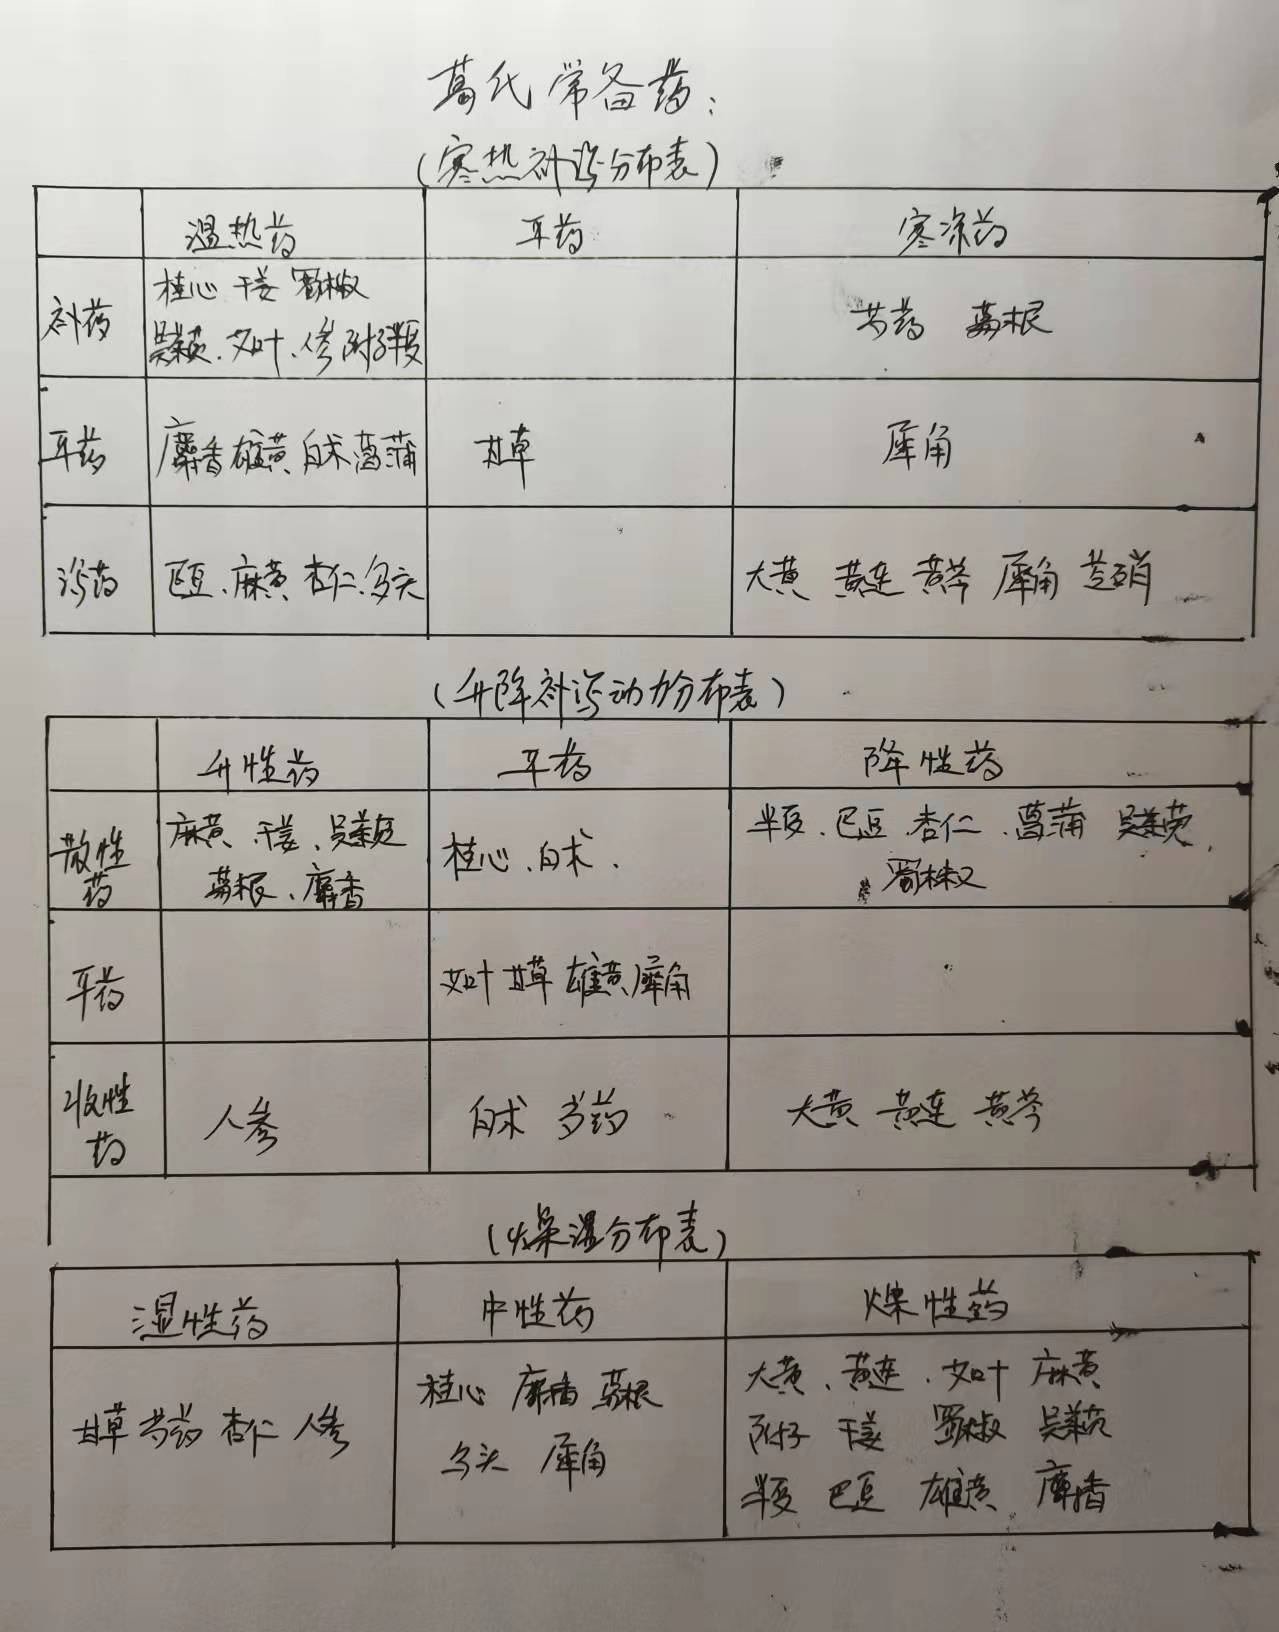 葛氏常备药：
（寒热补泻分布表）
温热药 平药 寒凉药
补药 桂心 干姜 蜀椒
吴茱萸、艾叶、人参 附子 半夏 芍药 葛根
平药 麝香 雄黄 白术 菖蒲 甘草 犀角
泻药 巴豆、麻黄 杏仁、乌头 大黄 黄连 黄芩 犀角 芒硝
（升降补泻动力分布表）
升性药 平药 降性药
散性药 麻黄、干姜、吴茱萸 桂心、白术、 半夏、巴豆、杏仁、菖蒲 吴茱萸、
葛根、麝香 蜀椒
平药 艾叶 甘草 雄黄、犀角
收性药 人参 白术 芍药 大黄 黄连 黄芩
（燥湿分布表）
湿性药 中性药 燥性药
甘草 芍药 杏仁 人参 桂心 麝香 葛根 大黄、黄连、艾叶 麻黄
乌头 犀角 附子 干姜 蜀椒 吴茱萸
半夏 巴豆 雄黄 麝香